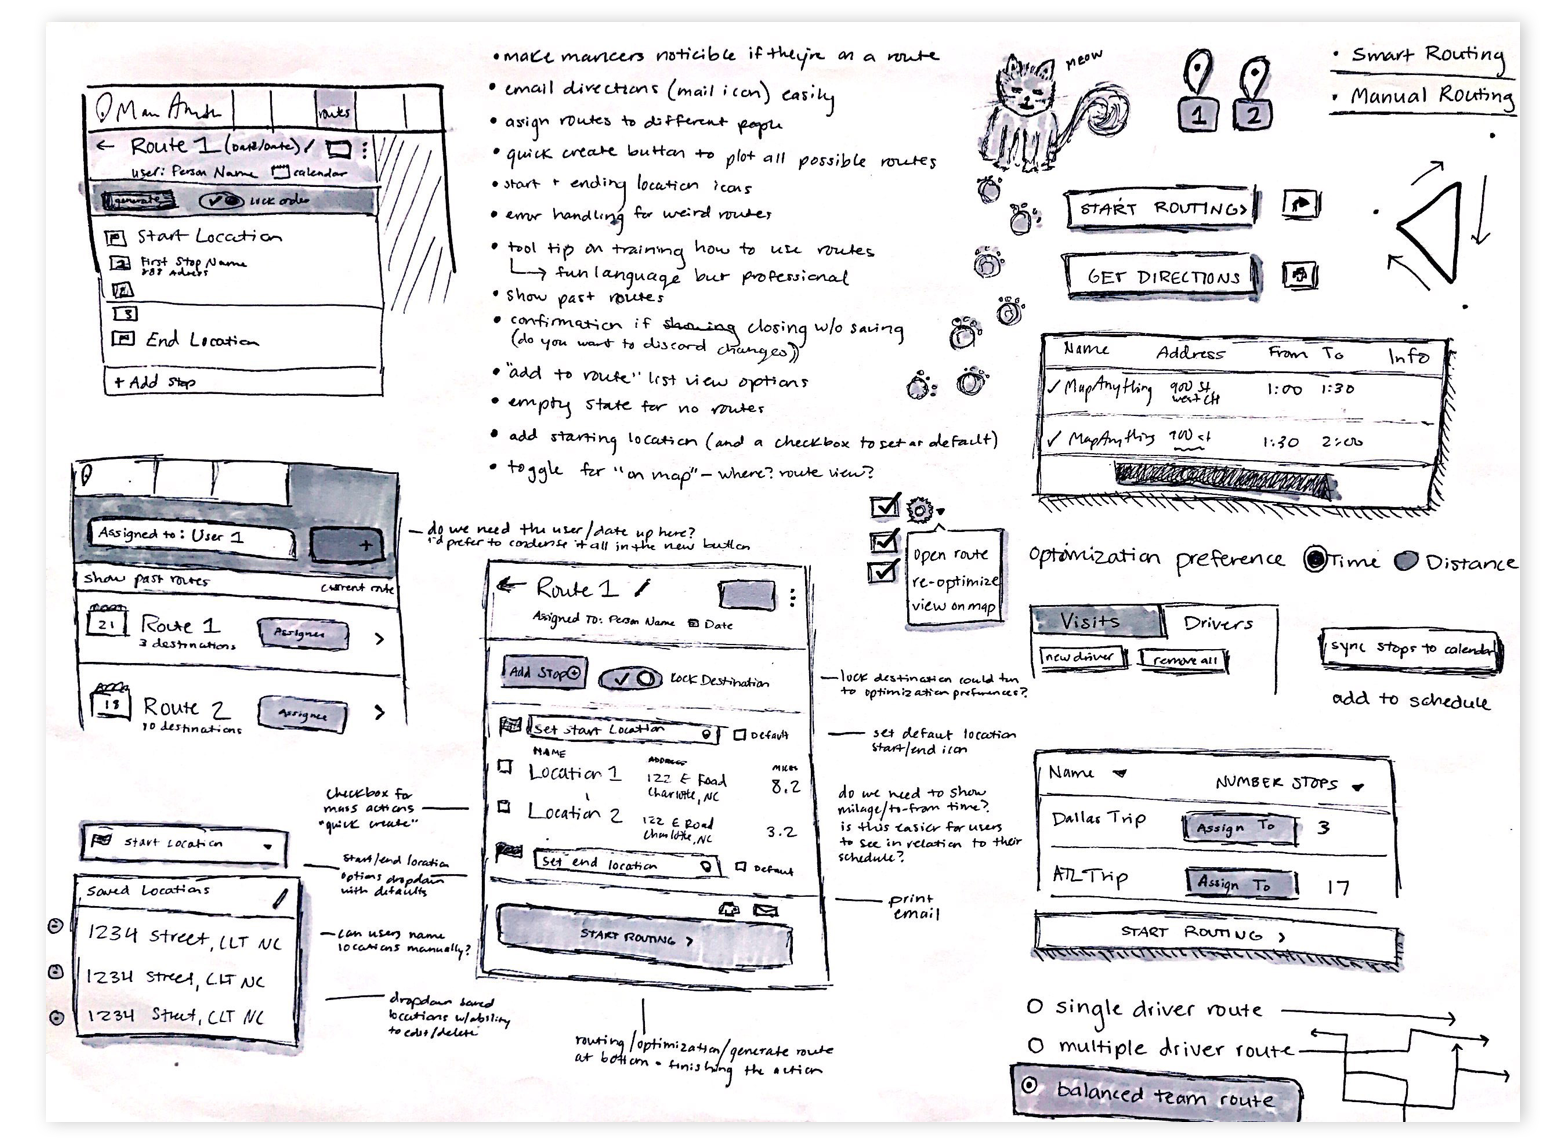 routes
← Route 1 (Date/Date)
user: Person Name calendar
generate lock order
Start Location
First Stop Name
2
3
End Location
+ Add Stop
• make marcers noticible if they're on a route
• email directions (mail icon) easily
• asign routes to different people
• quick create button to plot all possible routes
• start + ending location icons
• error handling for weird routes
• tool tip on training how to use routes
fun language but professional
• show past routes
• confirmation if showing closing w/o saving
(do you want to discard changes)
• "add to route" list view options
• empty state for no routes
• add starting location (and a checkbox to set as default)
• toggle for "on map" - where? route view?
meow
1 2
• Smart Routing
• Manual Routing
START ROUTING>
GET DIRECTIONS
Name Address From To Info
✓ MapAnything 900 St 1:00 1:30
✓ MapAnything 900 st 1:30 2:00
Assigned to: User 1
+
show past routes current route
21 Route 1
3 destinations
Assignee >
18 Route 2
10 destinations
Assignee >
do we need the user/date up here?
i'd prefer to condense it all in the new button
open route
re-optimize
view on map
optimization preference Time Distance
Visits Drivers
new driver remove all
sync stops to calendar
add to schedule
← Route 1
Assigned To: Person Name Date
Add Stop Lock Destination
Set start Location Default
NAME ADDRESS MILES
Location 1 122 E Road 8.2
Charlotte, NC
Location 2 122 E Road 3.2
Charlotte, NC
Set end location Default
START ROUTING >
lock destination could turn
to optimization preferences?
set defaut location
start/end icon
do we need to show
milage/to-from time?
is this easier for users
to see in relation to their
schedule?
print
email
routing/optimization/generate route
at bottom - finishing the action
checkbox for
mass actions
"quick create"
start/end location
options dropdown
with defaults
can users name
locations manually?
dropdown saved
locations w/ability
to edit/delete
Start Location
Saved Locations
1234 Street, CLT NC
1234 Street, CLT NC
1234 Street, CLT NC
Name NUMBER STOPS
Dallas Trip Assign To 3
ATL Trip Assign To 17
START ROUTING >
single driver route
multiple driver route
balanced team route